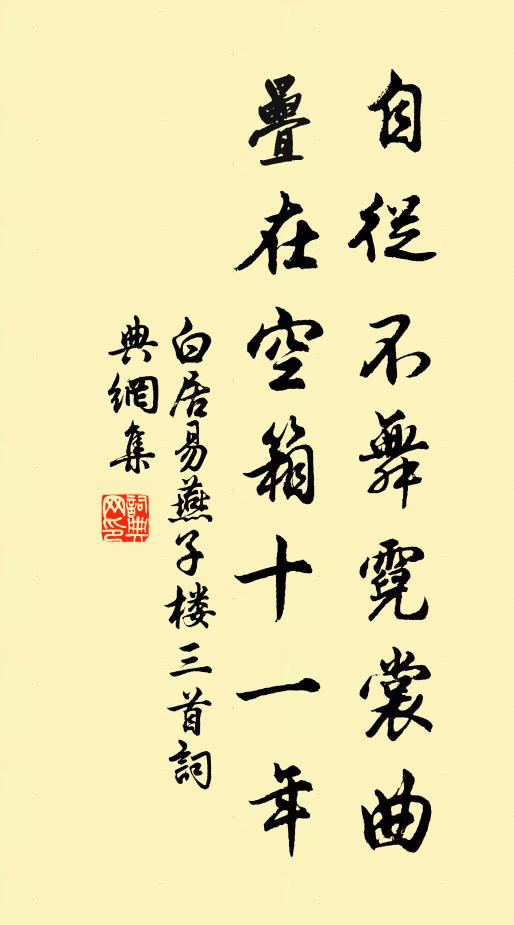 自從不舞霓裳曲
疊在空箱十一年
白居易燕子楼三首詞
典網集
詞典
网印